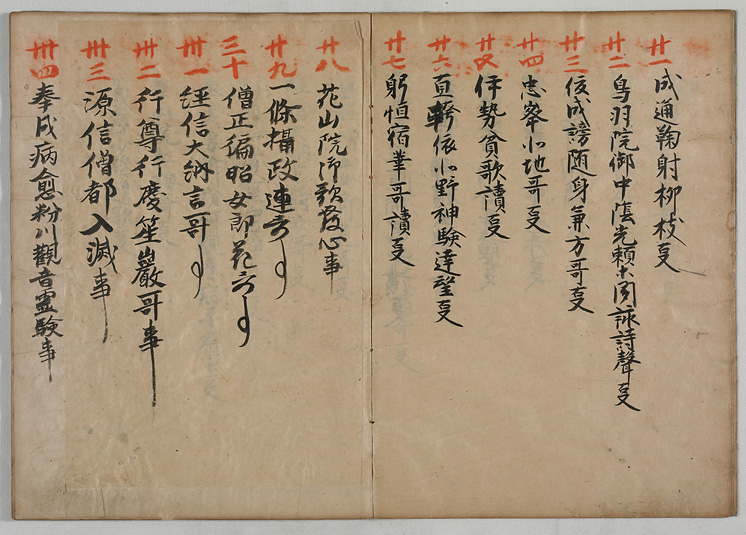 廿一 成通鞠射柳枝叓
廿二 鳥羽院御中陰光頼大関詠詩聲叓
廿三 俊成謗随身兼方哥叓
廿四 忠峯小地哥叓
廿五 伊勢貧歌讀叓
廿六 直幹依小野神験達望叓
廿七 躬恒宿華哥讀叓
廿八 花山院御歌發心事
廿九 一條攝政連哥事
三十 僧正徧昭女郎花哥事
卅一 経信大納言哥事
卅二 行尊行慶笙巖哥事
卅三 源信僧都入滅事
卅四 奉成病愈粉川觀音霊験事